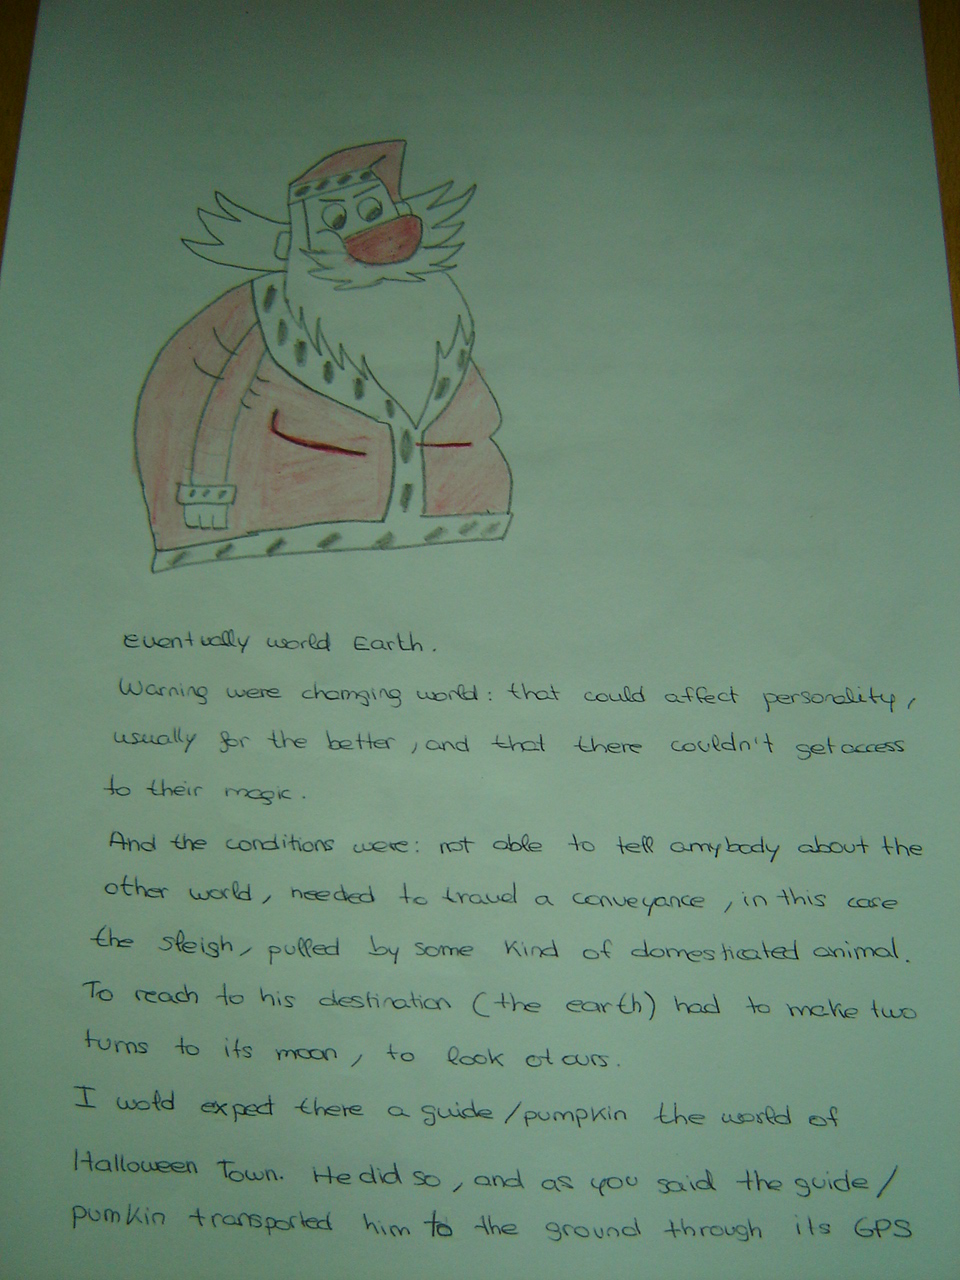 Eventually world Earth.
Warning were changing world: that could affect personality,
usually for the better, and that there couldn't get access
to their magic.
And the conditions were: not able to tell anybody about the
other world, needed to travel a conveyance, in this case
the sleigh, pulled by some kind of domesticated animal.
To reach to his destination (the earth) had to make two
turns to its moon, to look at ours.
I wold expect there a guide/pumpkin the world of
Halloween Town. He did so, and as you said the guide/
pumkin transported him to the ground through its GPS